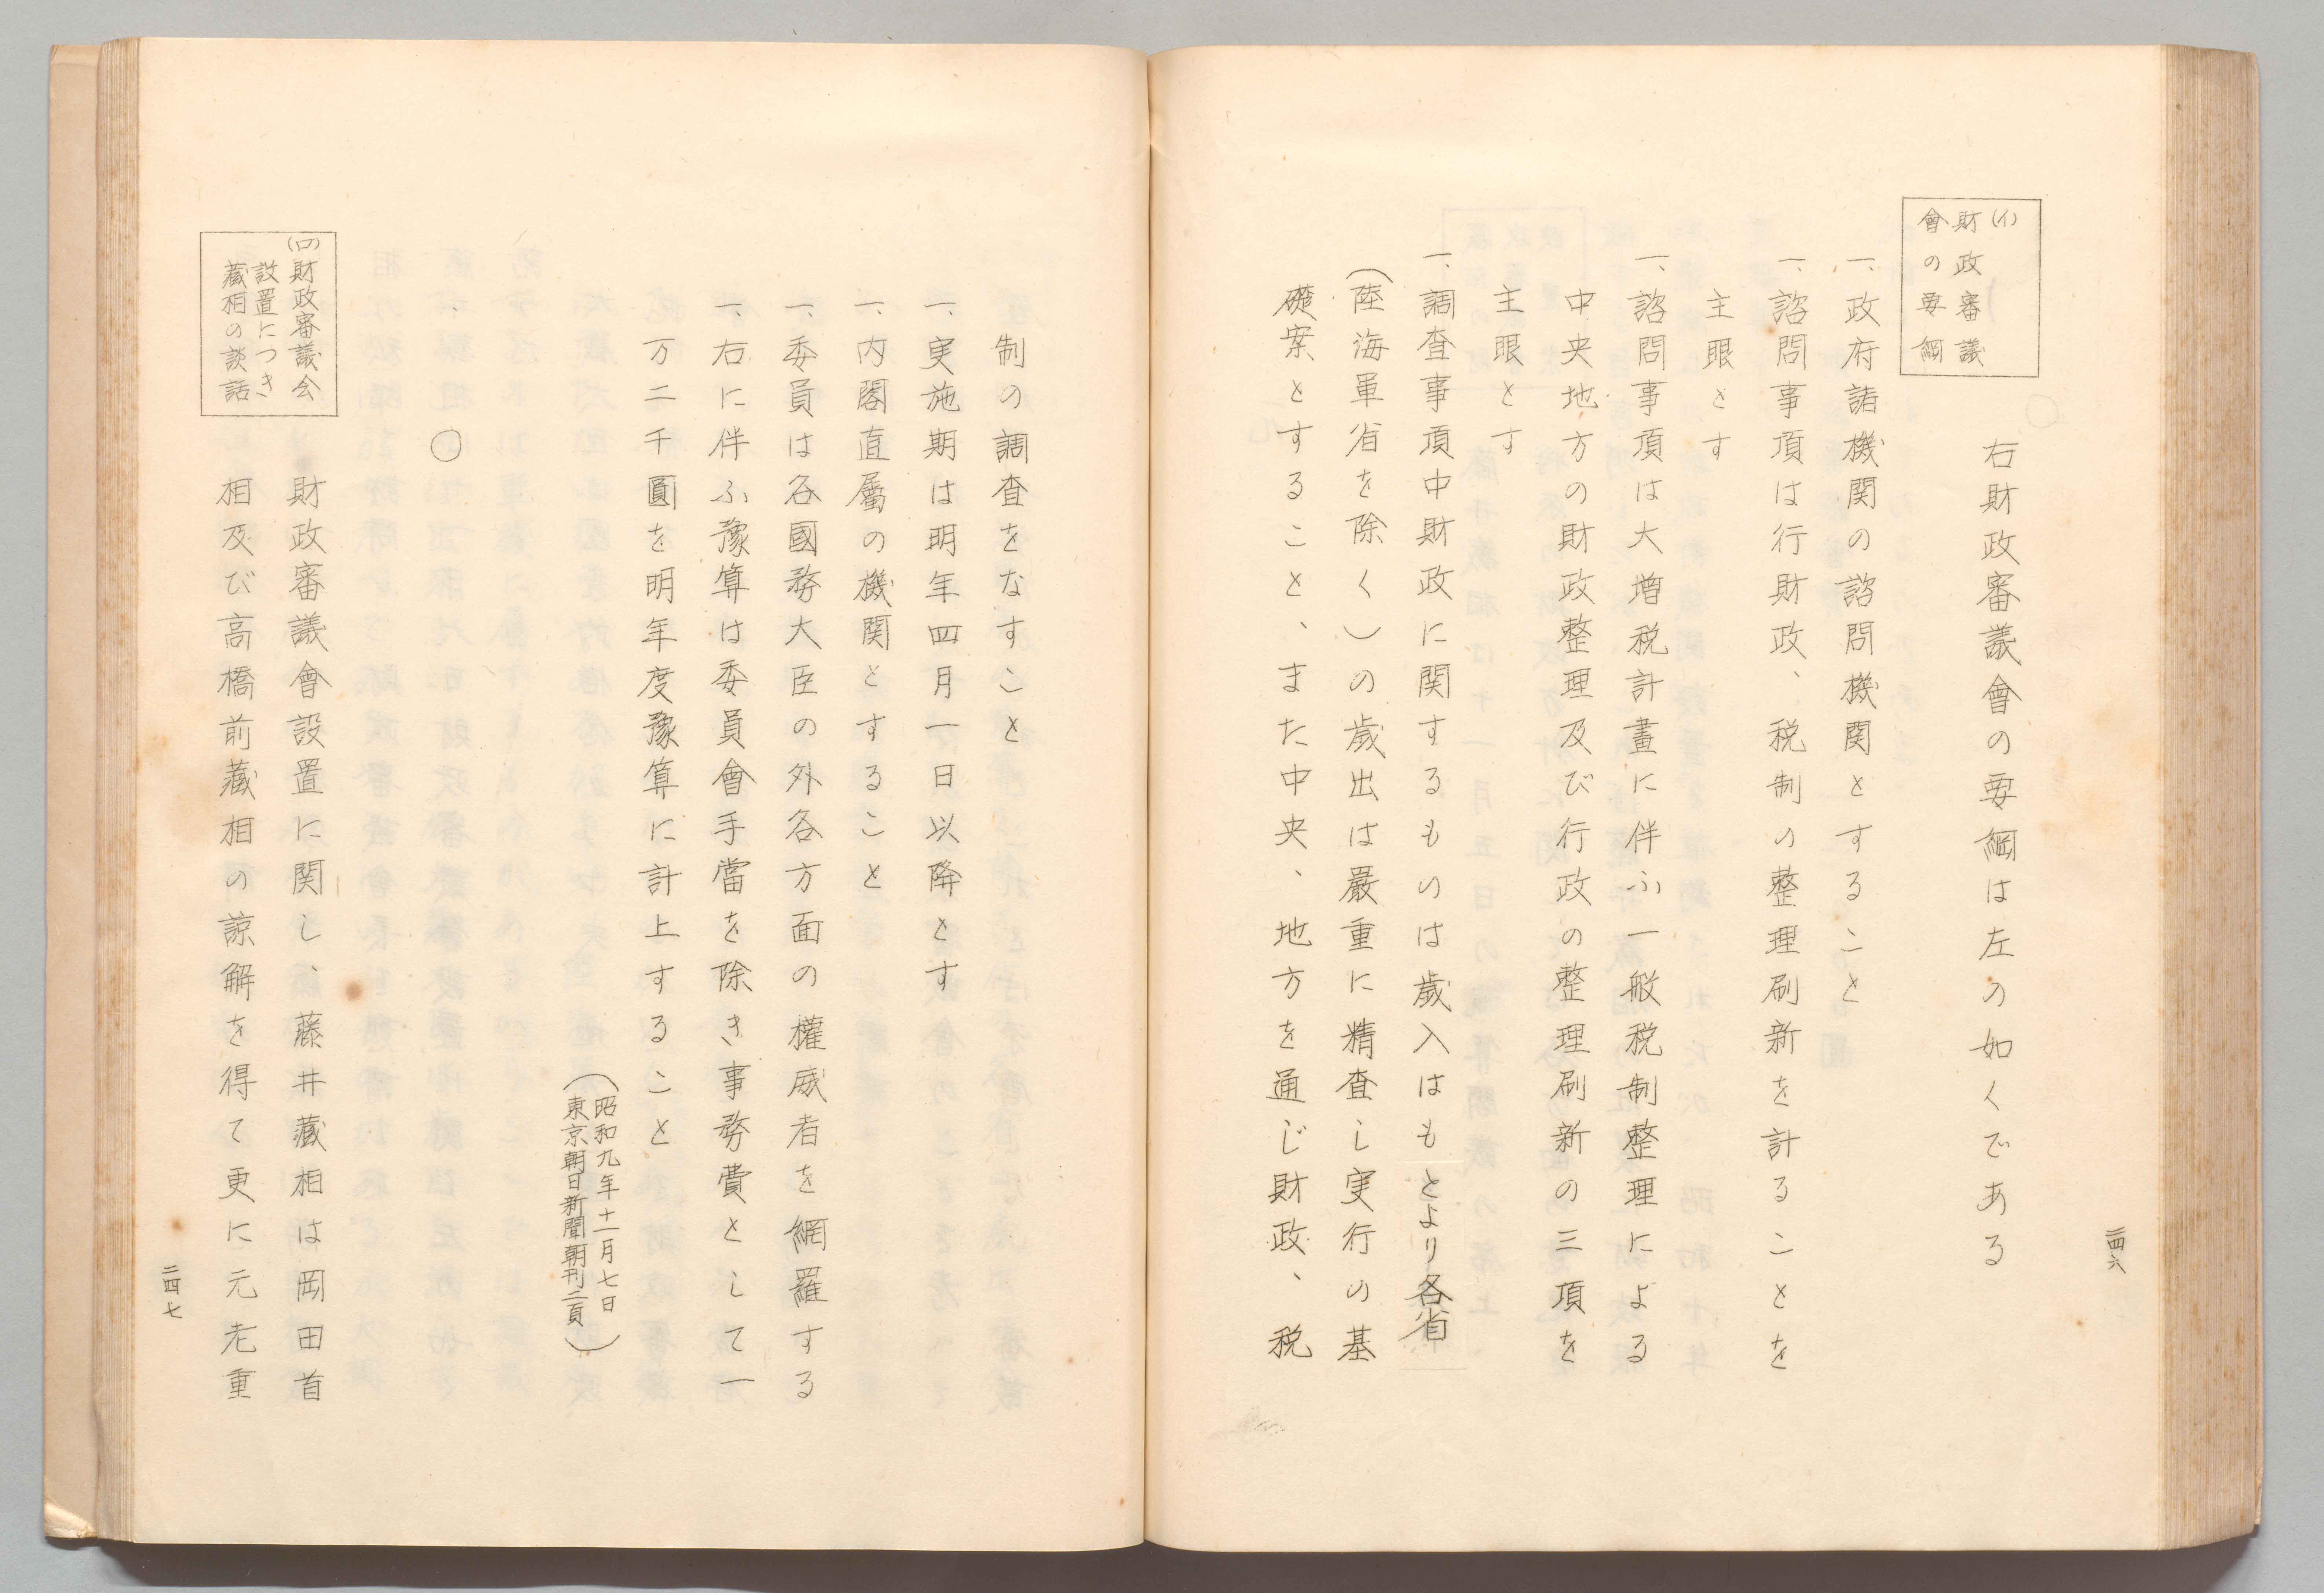 (イ)
財政審議
會の要綱
右財政審議會の要綱は左の如くである
一、政府諸機関の諮問機関とすること
一、諮問事項は行財政、税制の整理刷新を計ることを
主眼とす
一、諮問事項は大増税計畫に伴ふ一般税制整理による
中央地方の財政整理及び行政の整理刷新の三項を
主眼とす
一、調査事項中財政に関するものは歳入はもとより各省
(陸海軍省を除く)の歳出は嚴重に精査し実行の基
礎案とすること、また中央、地方を通じ財政、税
二四六
制の調査をなすこと
一、実施期は明年四月一日以降とす
一、内閣直屬の機関とすること
一、委員は各國務大臣の外各方面の權威者を網羅する
一、右に伴ふ豫算は委員會手當を除き事務費として一
万二千圓を明年度豫算に計上すること
(昭和九年十一月七日
東京朝日新聞朝刊二頁)
○
(ロ)財政審議会
設置につき
藏相の談話
財政審議會設置に関し、藤井藏相は岡田首
相及び高橋前藏相の諒解を得て更に元老重
二四七